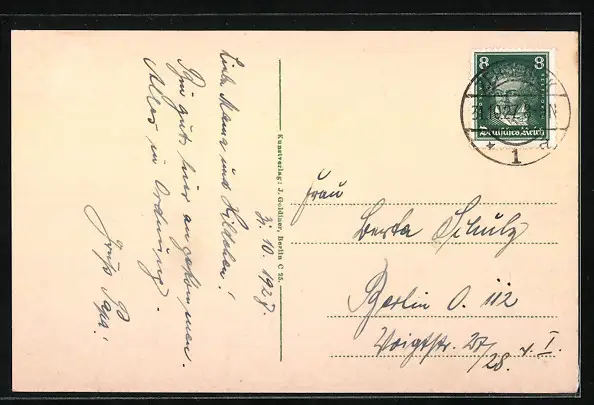 Liebe Mama und Hildchen!
Bin gut hier angekommen.
Alles in Ordnung.
Gruß Papa!
31. 10. 1927.
Kunstverlag: J. Goldiner, Berlin C 25.
8 8
Deutsches Reich
1
Frau
Berta Schulz
Berlin O. 112
Voigtstr. 27/
28. v. I.